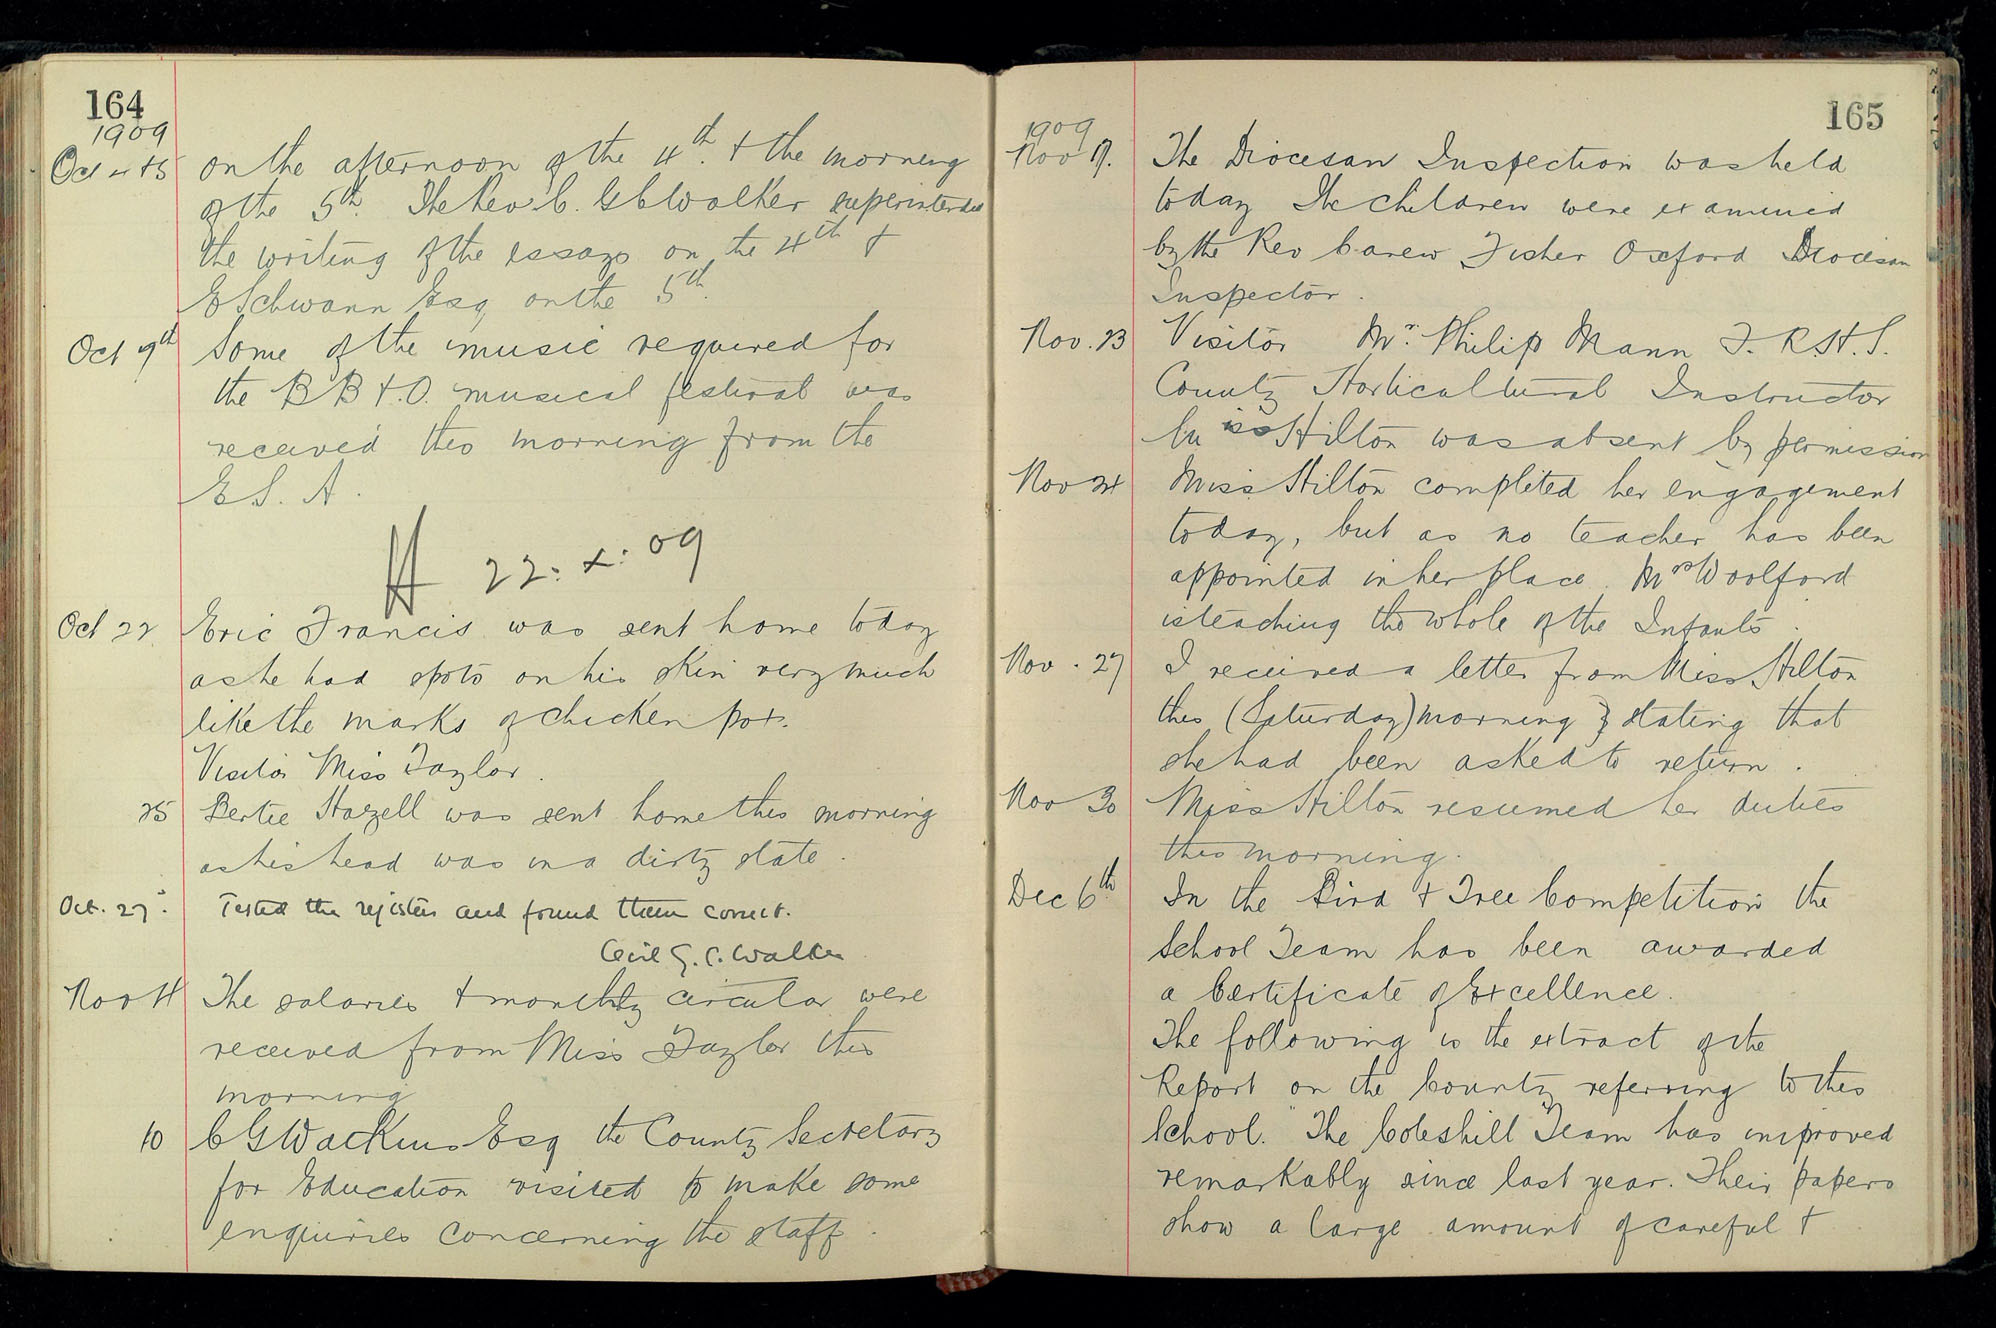 164
1909
Oct 4 & 5 on the afternoon of the 4th. & the morning
of the 5th. The Rev. C. G. C. Walker superintended
the writing of the essays on the 4th &
E Schwann Esq on the 5th.
Oct 9th Some of the music required for
the B B & O. musical festival was
received this morning from the
E S. A.
H 22. X. 09
Oct 22 Eric Francis was sent home today
as he had spots on his skin very much
like the marks of chicken pox.
Visitor Miss Taylor.
25 Bertie Hazell was sent home this morning
as his head was in a dirty state.
Oct. 27. Tested the registers and found them correct.
Cecil G. C. Walker
Nov 4 The salaries & monthly circular were
received from Miss Taylor this
morning
10 C G Watkins Esq the County Secretary
for Education visited to make some
enquiries concerning the staff.
165
1909
Nov The Diocesan Inspection was held
today The children were examined
by the Rev Carew Fisher Oxford Diocesan
Inspector.
Nov. 23 Visitor Mr. Philip Mann F. R. H. S.
County Horticultural Instructor
Miss Hilton was absent by permission
Nov 24 Miss Hilton completed her engagement
today, but as no teacher has been
appointed in her place. Mrs Woolford
is teaching the whole of the Infants.
Nov. 27 I received a letter from Miss Hilton
this (Saturday) morning stating that
she had been asked to return.
Nov 30 Miss Hilton resumed her duties
this morning.
Dec 6th In the Bird & Tree Competition the
School Team has been awarded
a Certificate of Excellence.
The following is the extract of the
Report on the County referring to this
School. "The Coleshill Team has improved
remarkably since last year. Their papers
show a large amount of careful &